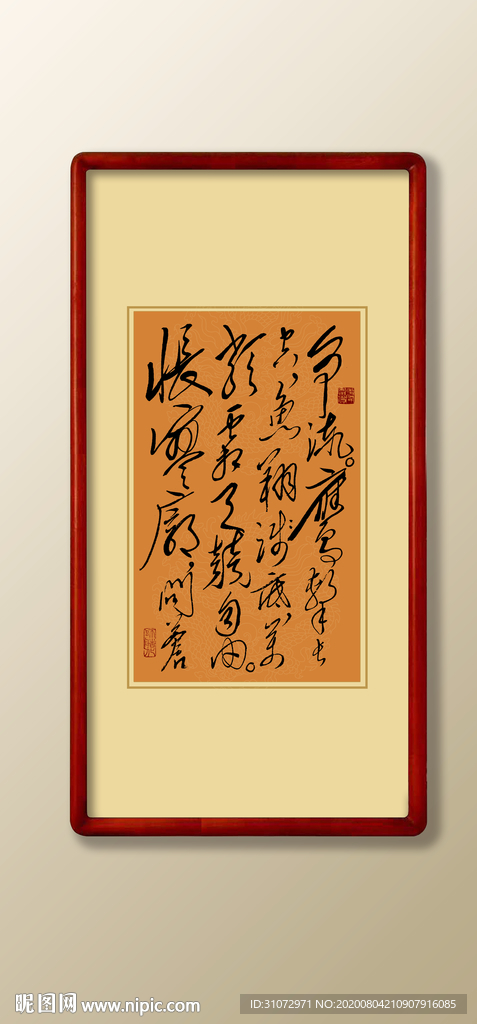 争流。鷹擊长
空，魚翔浅底，萬
類霜天競自由。
悵寥廓，問蒼
昵图网 www.nipic.com
ID:31072971 NO:20200804210907916085